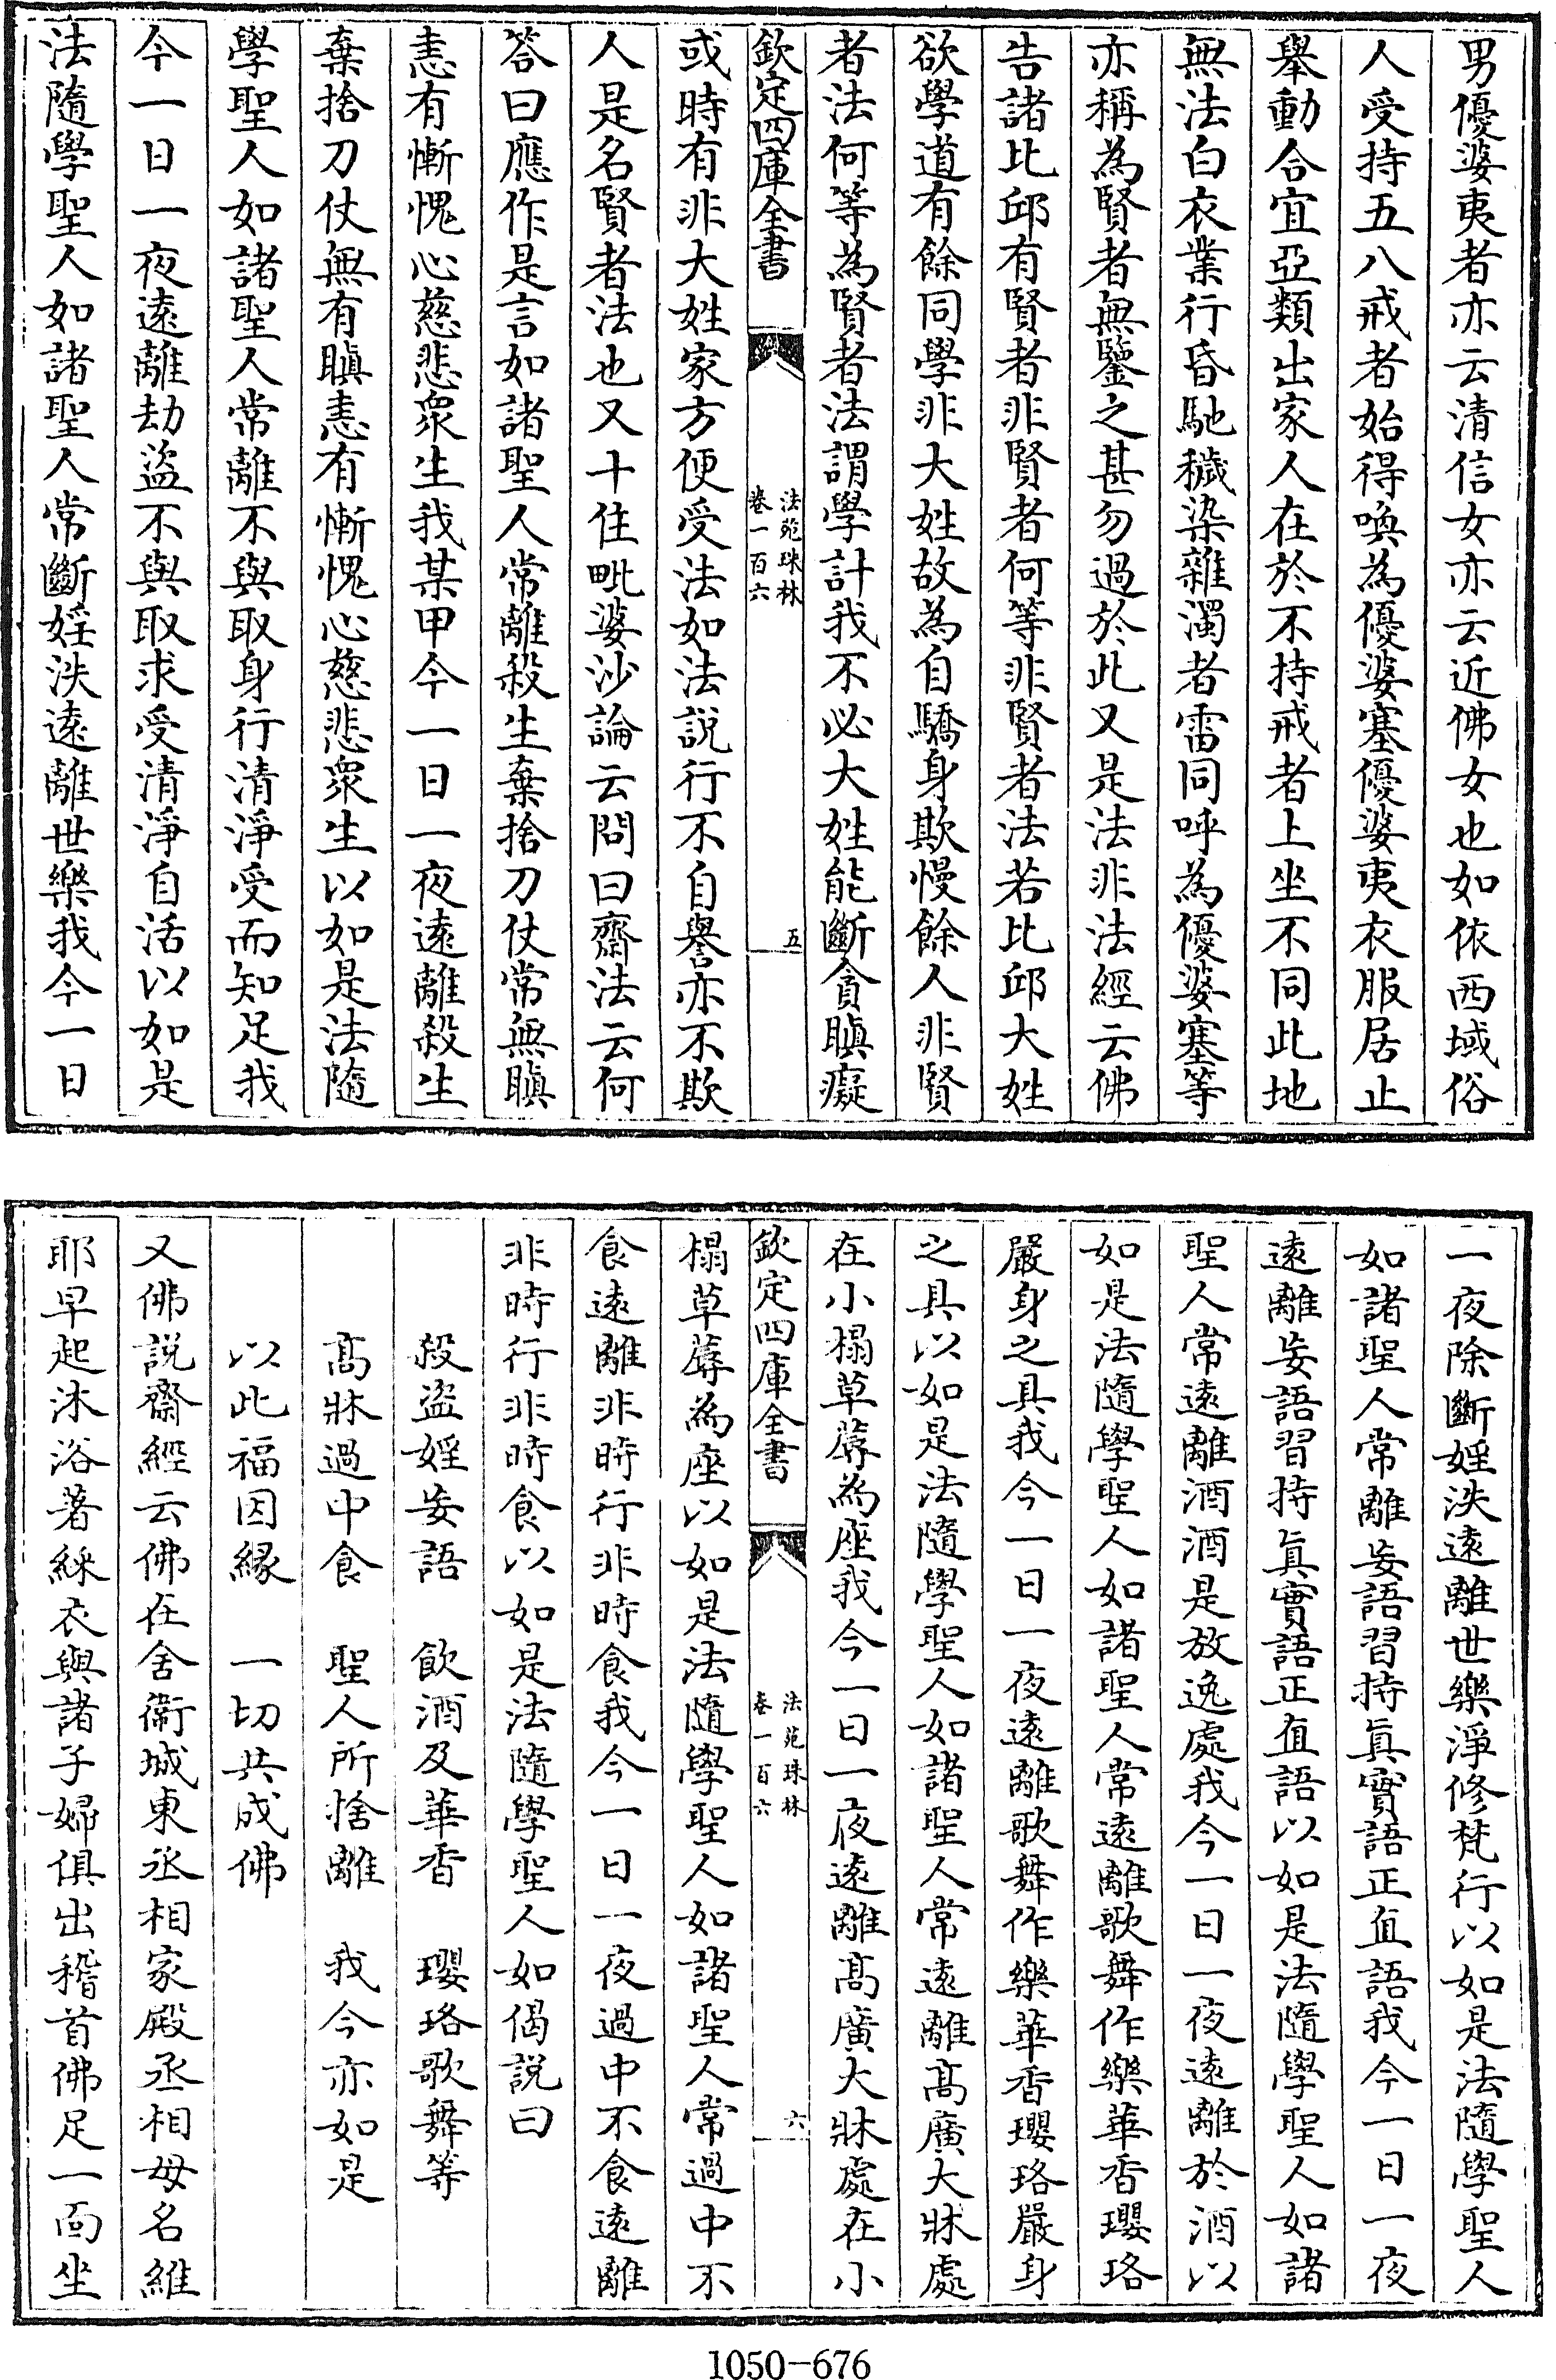 男優婆夷者亦云清信女亦云近佛女也如依西域俗
人受持五八戒者始得喚為優婆塞優婆夷衣服居止
舉動合宜亞類出家人在於不持戒者上坐不同此地
無法白衣業行昏馳穢染雜濁者雷同呼為優婆塞等
亦稱為賢者無鑒之甚勿過於此又是法非法經云佛
告諸比邱有賢者非賢者何等非賢者法若比邱大姓
欲學道有餘同學非大姓故為自驕身欺慢餘人非賢
者法何等為賢者法謂學計我不必大姓能斷貪瞋癡
欽定四庫全書
法苑珠林
卷一百六
五
或時有非大姓家方便受法如法說行不自譽亦不欺
人是名賢者法也又十住毗婆沙論云問曰齋法云何
答曰應作是言如諸聖人常離殺生棄捨刀仗常無瞋
恚有慚愧心慈悲眾生我某甲今一日一夜遠離殺生
棄捨刀仗無有瞋恚有慚愧心慈悲眾生以如是法隨
學聖人如諸聖人常離不與取身行清淨受而知足我
今一日一夜遠離劫盜不與取求受清淨自活以如是
法隨學聖人如諸聖人常斷婬泆遠離世樂我今一日
一夜除斷婬泆遠離世樂淨修梵行以如是法隨學聖人
如諸聖人常離妄語習持真實語正直語我今一日一夜
遠離妄語習持真實語正直語以如是法隨學聖人如諸
聖人常遠離酒酒是放逸處我今一日一夜遠離於酒以
如是法隨學聖人如諸聖人常遠離歌舞作樂華香瓔珞
嚴身之具我今一日一夜遠離歌舞作樂華香瓔珞嚴身
之具以如是法隨學聖人如諸聖人常遠離高廣大牀處
在小榻草蓐為座我今一日一夜遠離高廣大牀處在小
欽定四庫全書
法苑珠林
卷一百六
六
榻草蓐為座以如是法隨學聖人如諸聖人常過中不
食遠離非時行非時食我今一日一夜過中不食遠離
非時行非時食以如是法隨學聖人如偈說曰
殺盜婬妄語　飲酒及華香　瓔珞歌舞等
高牀過中食　聖人所捨離　我今亦如是
以此福因緣　一切共成佛
又佛說齋經云佛在舍衛城東丞相家殿丞相母名維
耶早起沐浴著綵衣與諸子婦俱出稽首佛足一面坐
1050-676